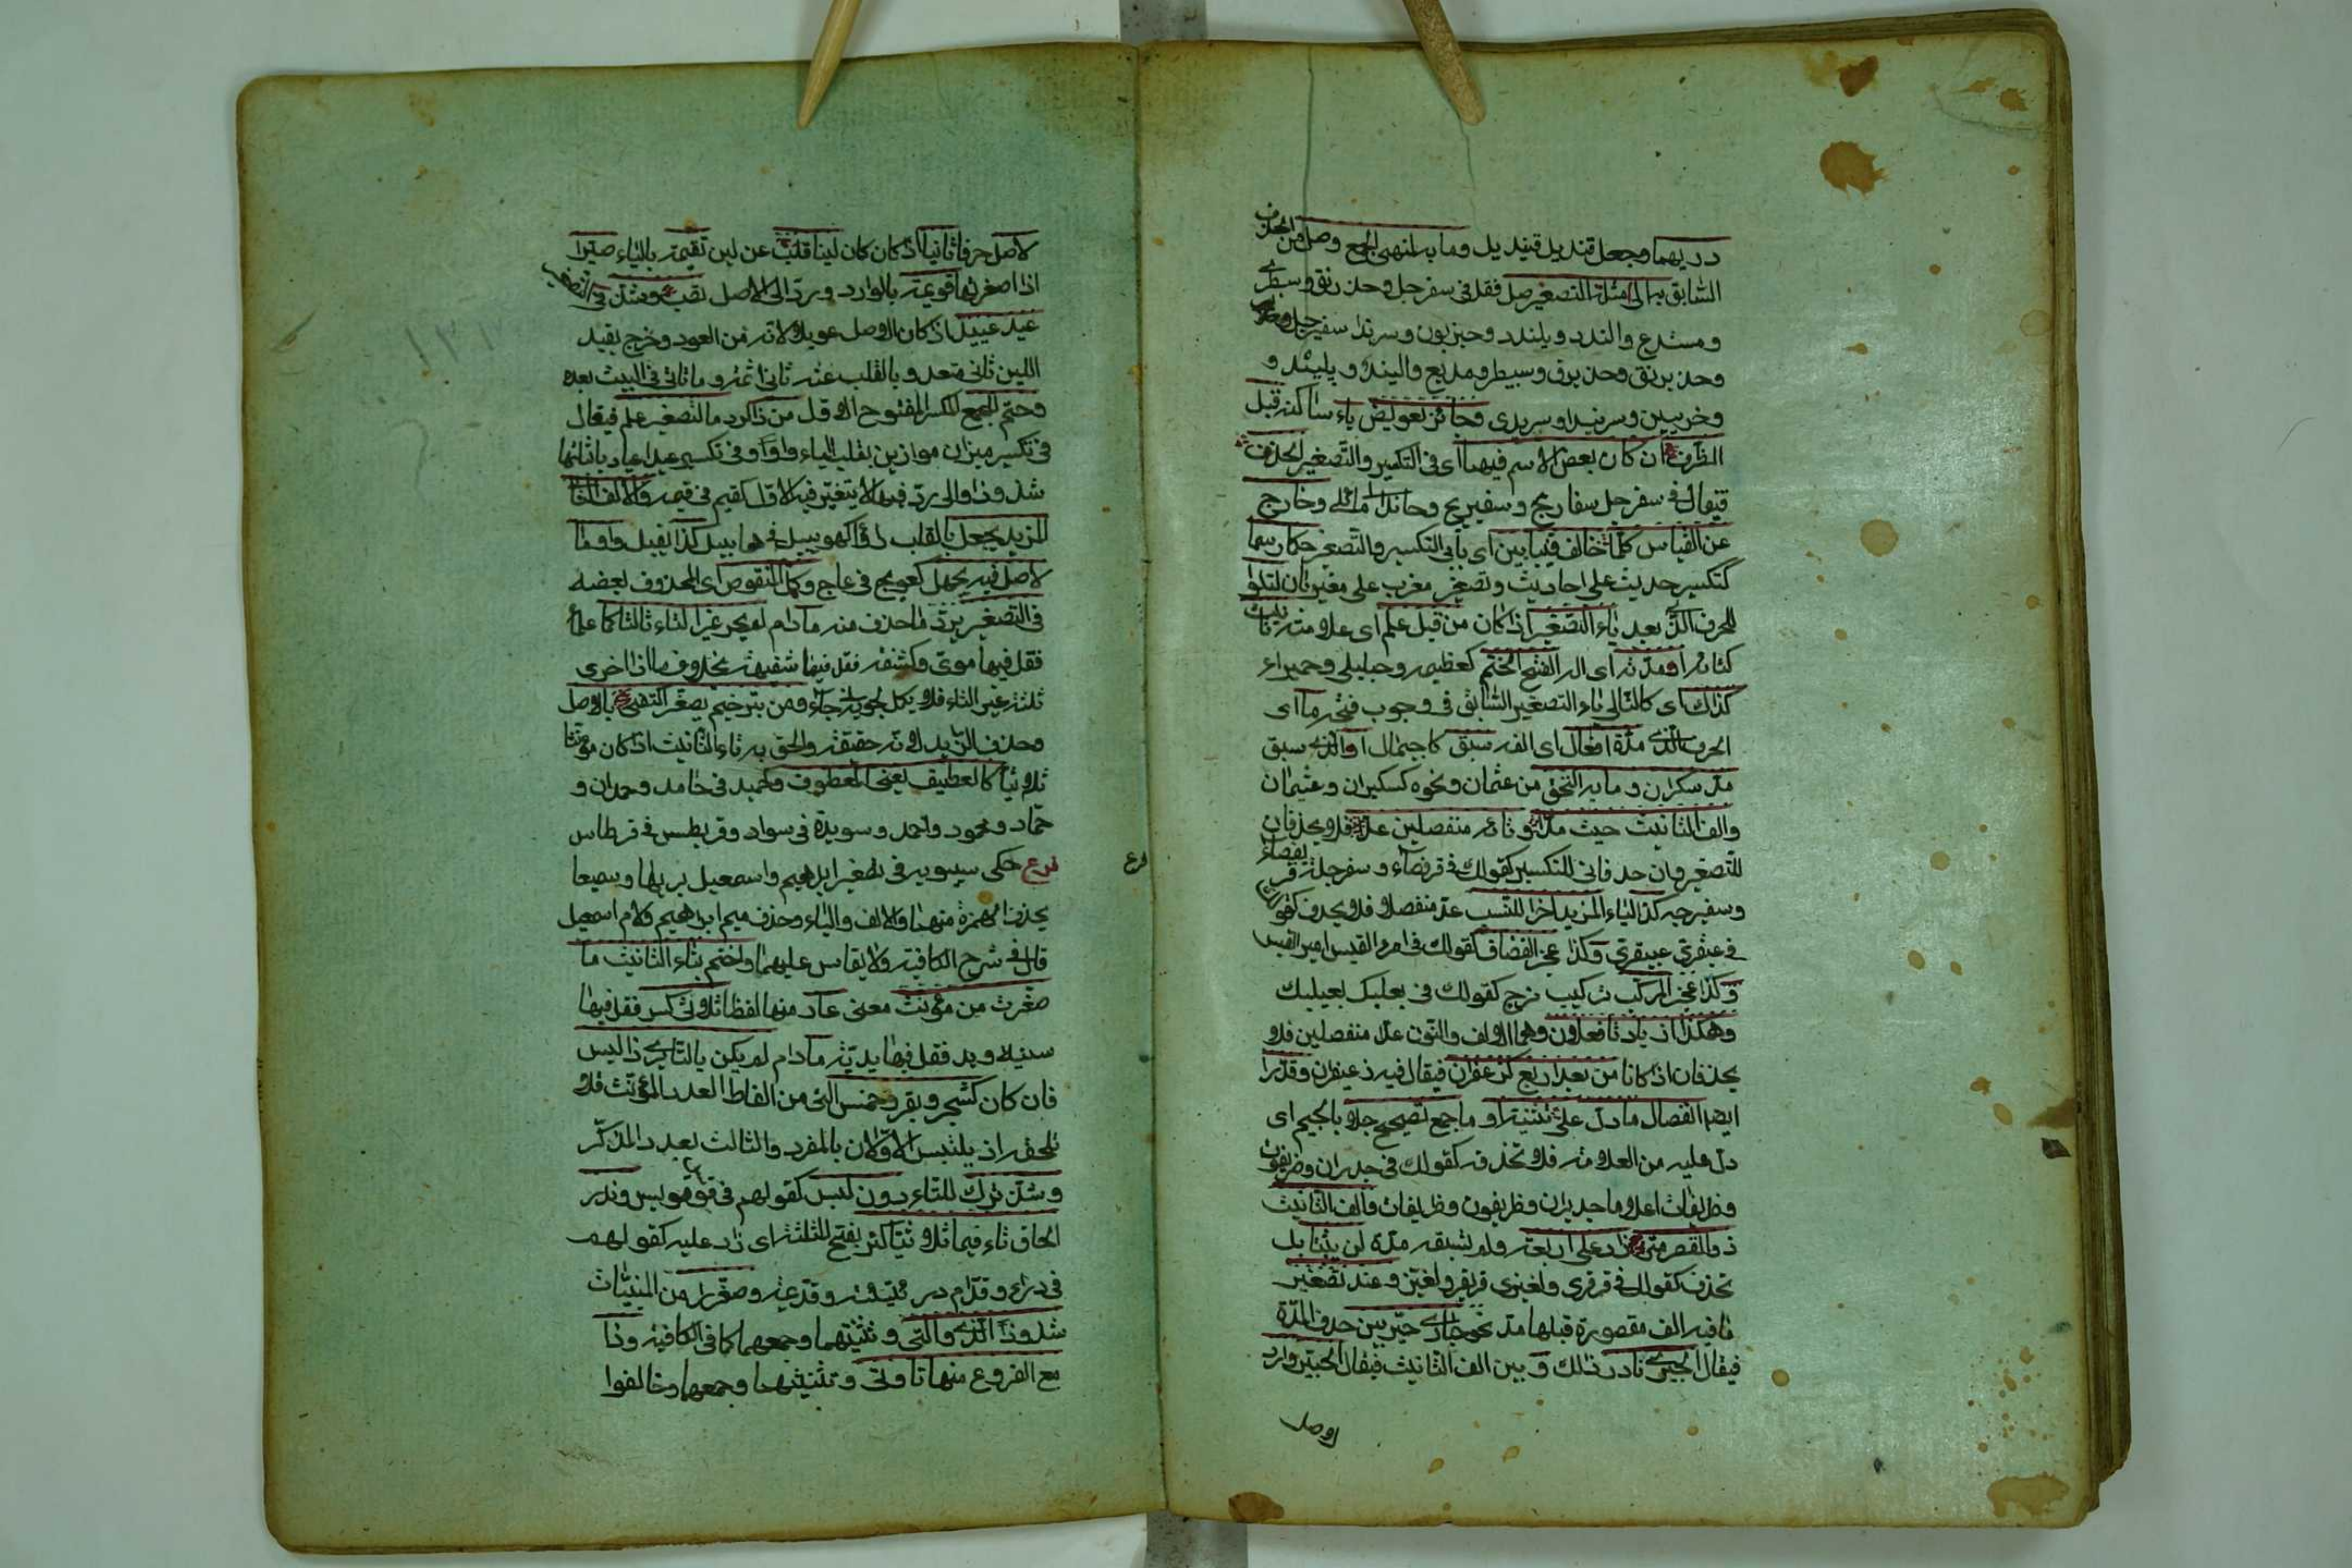 دريهما وجعل قنديل قنيديل وما به لمنتهى الجمع وصل من الحذف
السّابق به الى امثلة التصغير صل فقل فى سفرجل وحذرنق وسبطرى
ومستدع والندد ويلندد وحيزبون وسرندا سفيرج
وحذيرنق وحذيرق وسبيطر ومديع واليند ويليند و
وحزيبين وسريندا وسريدى وجائز تعويض ياء ساكنة قبل
الطّرف ان كان بعض الاسم فيهما اى فى التكسير والتّصغير انحذف
فيقال فى سفرجل سفاريج وسفيريج وحائد اى مائل وخارج
عن القياس كلّما خالف فى بابين اى بابى التكسير والتّصغير حكما رسما
كتكسير حديث على احاديث وتصغير مغرب على مغيربان لتلو
للحرف الّذى بعد ياء التّصغير اذا كان من قبل علم اى علامة تانيث
كتائه او مدّته اى الفه الفتح انحتم كعظيمة وحبيلى وحميراء
كذاك اى كالتالى ياء التصغير السّابق فى وجوب فتحه ما اى
الحرف الّذى مدّة افعال اى الفه سبق كاجيمال او الّذى سبق
مدّ سكران وما به التحق من عثمان ونحوه كسكيران وعثيمان
والف التانيث حيث مدّا وتاؤه منفصلين عدّا فلا يحذفان
للتّصغير وان حذفا فى التكسير كقولك فى قرفصاء وسفرجلة قريفصاء
وسفيرجة كذا الياء المزيد اخرا للنّسب عدّ منفصلا فلا يحذف كقولك
فى عبقرىّ عبيقرىّ وكذا عجز المضاف كقولك فى امرء القيس اميرء القيس
وكذا عجز المركّب تركيب مزج كقولك فى بعلبك بعيلبك
وهكذا زيادتا فعلان وهما الالف والنّون عدّا منفصلين فلا
يحذفان اذا كانا من بعد اربع كزعفران فيقال فيه زعيفران وقدّر
ايضا انفصال ما دلّ على تثنية او جمع تصحيح جلا بالجيم اى
دلّ عليه من العلامة فلا تحذفه كقولك فى جدران وظريفون
وظريفات اعلاما جديران وظريفون وظريفات والف التّانيث
ذو القصر متى زاد على اربعة ولم تسبقه مدّة لن يثبتا بل
تحذف كقولك فى قرقرى ولغيزى قريقر ولغيّز وعند تصغير
ما فيه الف مقصورة قبلها مدّ نحو حبارى خيّر بين حذف المدّة
فيقال الحبيرى فادر ذلك و بين الف التّانيث فيقال الحبيّر واردد
لاصل
لاصل حرفا ثانيا اذ كان كان لينا قلب عن لين تقيمة بالياء صيّر
اذا صغرتها قويمة بالواو رد فى ردّ الى الاصل تصب وشذّ فى التصغير
عيد عييد اذ كان الاصل عويدا لانّه من العود وخرج بقيد
اللين ثانى متعد وبالقلب عنه ثانى ائمّة وما ثانى فى البيت بعده
وحتم للجمع المكسّر المفتوح الاوّل من ذا كردّ ما لتصغير علم فيقال
فى تكسير ميزان موازين بقلب الياء واوا وفى تكسير عيد اعياد باثباتها
شذوذا والى ردّ فيما لا يتغيّر فيه الاوّل كقيم فى قيمة والالف الثّانى
المزيد يجعل بانقلاب واوا كهوييل فى هابيل كذا يقبل واو ما
الاصل فيه يجهل كعويج فى عاج وكمّل المنقوص اى المحذوف بعضه
فى التصغير بردّ ما حذف منه ما دام لم يحو غير التاء ثالثا كما علما
فقل فيها موىّ وكشفة فقل فيها شفيهة بخلاف ما اذا حوى
ثلثة غير التاء فلا يكمل كجويه فى جاه ومن بترخيم يصغّر اكتفى بالاصل
وحذف الزّايد لانّه حقيقة والحق به تاء التّانيث اذا كان مؤنّثا
ثلاثيّا كالعطيف يعنى المعطوف وكحميد فى حامد وحمدان و
حمّاد ومحمود واحمد وسويدة فى سواد وقريطس فى قرطاس
فرع حكى سيبويه فى تصغير ابراهيم واسمعيل بريها وسميعا
بحذف الهمزة منهما والالف والياء وحذف ميم ابراهيم ولام اسمعيل
قال فى شرح الكافية ولا يقاس عليهما واختم بتاء التانيث ما
صغّرت من مؤنّث معنى عار منها لفظا ثلاثىّ كسنّ فقل فيها
سنينة ويد فقل فيها يديّة ما دام لم يكن بالتّا يرى ذا لبس
فان كان كشجر وبقر وخمس الّتى من الفاظ العدد المؤنّث فلا
تلحقه اذ يلتبس الاوّلان بالمفرد والثالث بعدد المذكّر
وشذّ ترك للتاء دون لبس كقولهم فى قوس قويس وندر
الحاق تاء فيما ثلاثيّا كثر بفتح المثلثة اى زاد عليه كقولهم
فى وراء وقدّام وريّئة وقديديمة وصغّروا من المبنيّات
شذوذا الّذى والّتى وتثنيتهما وجمعهما كما فى الكافية وذا
مع الفروع منها تا وتى وتثنيتهما وجمعهما وخالفوا
فرع